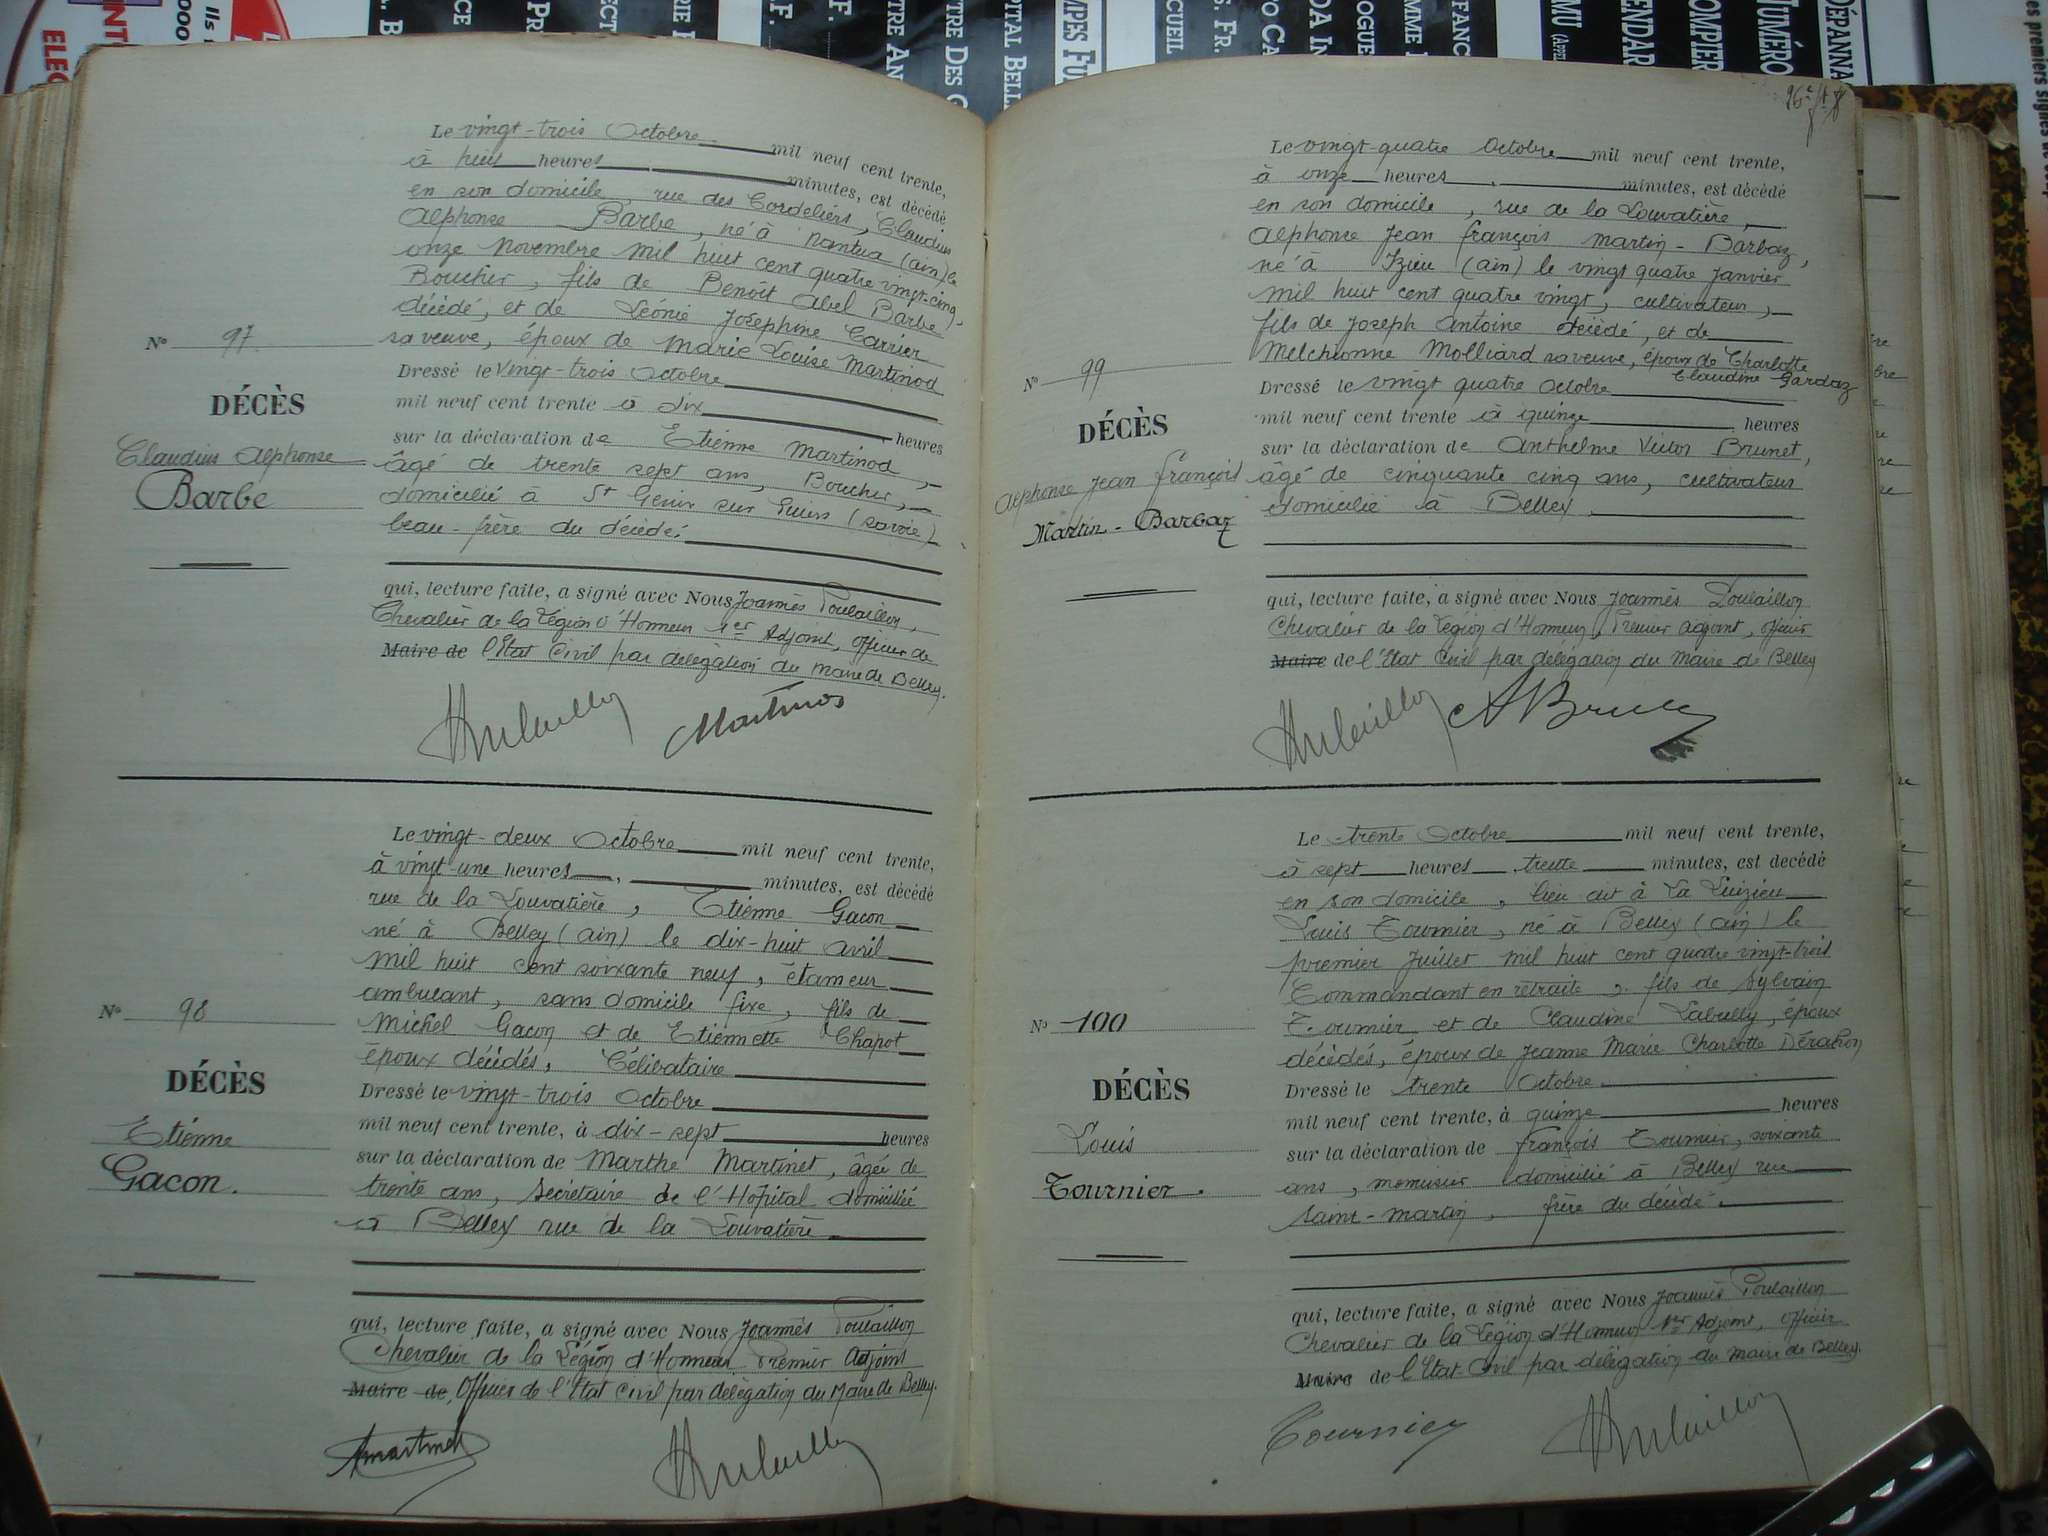 Le vingt-trois Octobre mil neuf cent trente,
à huit heures minutes, est décédé
en son domicile, rue des Cordeliers, Claudius
Alphonse Barbe, né à Nantua (ain) le
onze Novembre mil huit cent quatre vingt-cinq,
Boucher, fils de Benoît Abel Barbe
décédé, et de Léonie Joséphine Carrier
sa veuve, époux de Marie Louise Martinod
N° 97
DÉCÈS
Claudius Alphonse
Barbe
Dressé le vingt-trois Octobre
mil neuf cent trente à dix heures
sur la déclaration de Etienne Martinod
âgé de trente sept ans, Boucher,
domicilié à St Genix sur Guiers (savoie)
beau-frère du décédé.
qui, lecture faite, a signé avec Nous Joannès Poulaillon,
Chevalier de la Légion d'Honneur 1er Adjoint, Officier de
Maire de l'Etat Civil par délégation du maire de Belley.
Martinod
Le vingt-deux Octobre mil neuf cent trente,
à vingt-une heures, minutes, est décédé
rue de la Louvatière, Etienne Gacon
né à Belley (ain) le dix-huit avril
mil huit cent soixante neuf, étameur
ambulant, sans domicile fixe, fils de
Michel Gacon et de Etiennette Chapot
époux décédés, Célibataire
N° 98
DÉCÈS
Etienne
Gacon.
Dressé le vingt-trois Octobre
mil neuf cent trente, à dix-sept heures
sur la déclaration de Marthe Martinet, âgée de
trente ans, Secrétaire de l'Hôpital domiciliée
à Belley rue de la Louvatière
qui, lecture faite, a signé avec Nous Joannès Poulaillon
Chevalier de la Légion d'Honneur Premier Adjoint
Maire de Officier de l'Etat Civil par délégation du Maire de Belley.
Martinet
Le vingt-quatre Octobre mil neuf cent trente,
à onze heures, minutes, est décédé
en son domicile, rue de la Louvatière,
Alphonse Jean François Martin-Barbaz,
né à Izieu (ain) le vingt quatre janvier
mil huit cent quatre vingt, cultivateur,
fils de Joseph Antoine décédé, et de
Melchionne Molliard sa veuve, époux de Charlotte
Claudine Gardaz
N° 99
DÉCÈS
Alphonse Jean François
Martin-Barbaz
Dressé le vingt quatre Octobre
mil neuf cent trente à quinze heures
sur la déclaration de Anthelme Victor Brunet,
âgé de cinquante cinq ans, cultivateur
domicilié à Belley
qui, lecture faite, a signé avec Nous Joannès Poulaillon
Chevalier de la Légion d'Honneur, Premier adjoint, officier
Maire de l'Etat Civil par délégation du Maire de Belley
Le trente Octobre mil neuf cent trente,
à sept heures trente minutes, est décédé
en son domicile, lieu dit à La
Louis Tournier, né à Belley (ain) le
premier Juillet mil huit cent quatre vingt-trois
Commandant en retraite, fils de Sylvain
Tournier et de Claudine Labully, époux
décédés, époux de Jeanne Marie Charlotte
N° 100
DÉCÈS
Louis
Tournier.
Dressé le trente Octobre
mil neuf cent trente, à quinze heures
sur la déclaration de François Tournier, soixante
ans, menuisier domicilié à Belley rue
Saint-Martin, frère du décédé
qui, lecture faite, a signé avec Nous Joannès Poulaillon
Chevalier de la Légion d'Honneur 1er Adjoint, Officier
Maire de l'Etat-Civil par délégation du maire de Belley.
Tournier